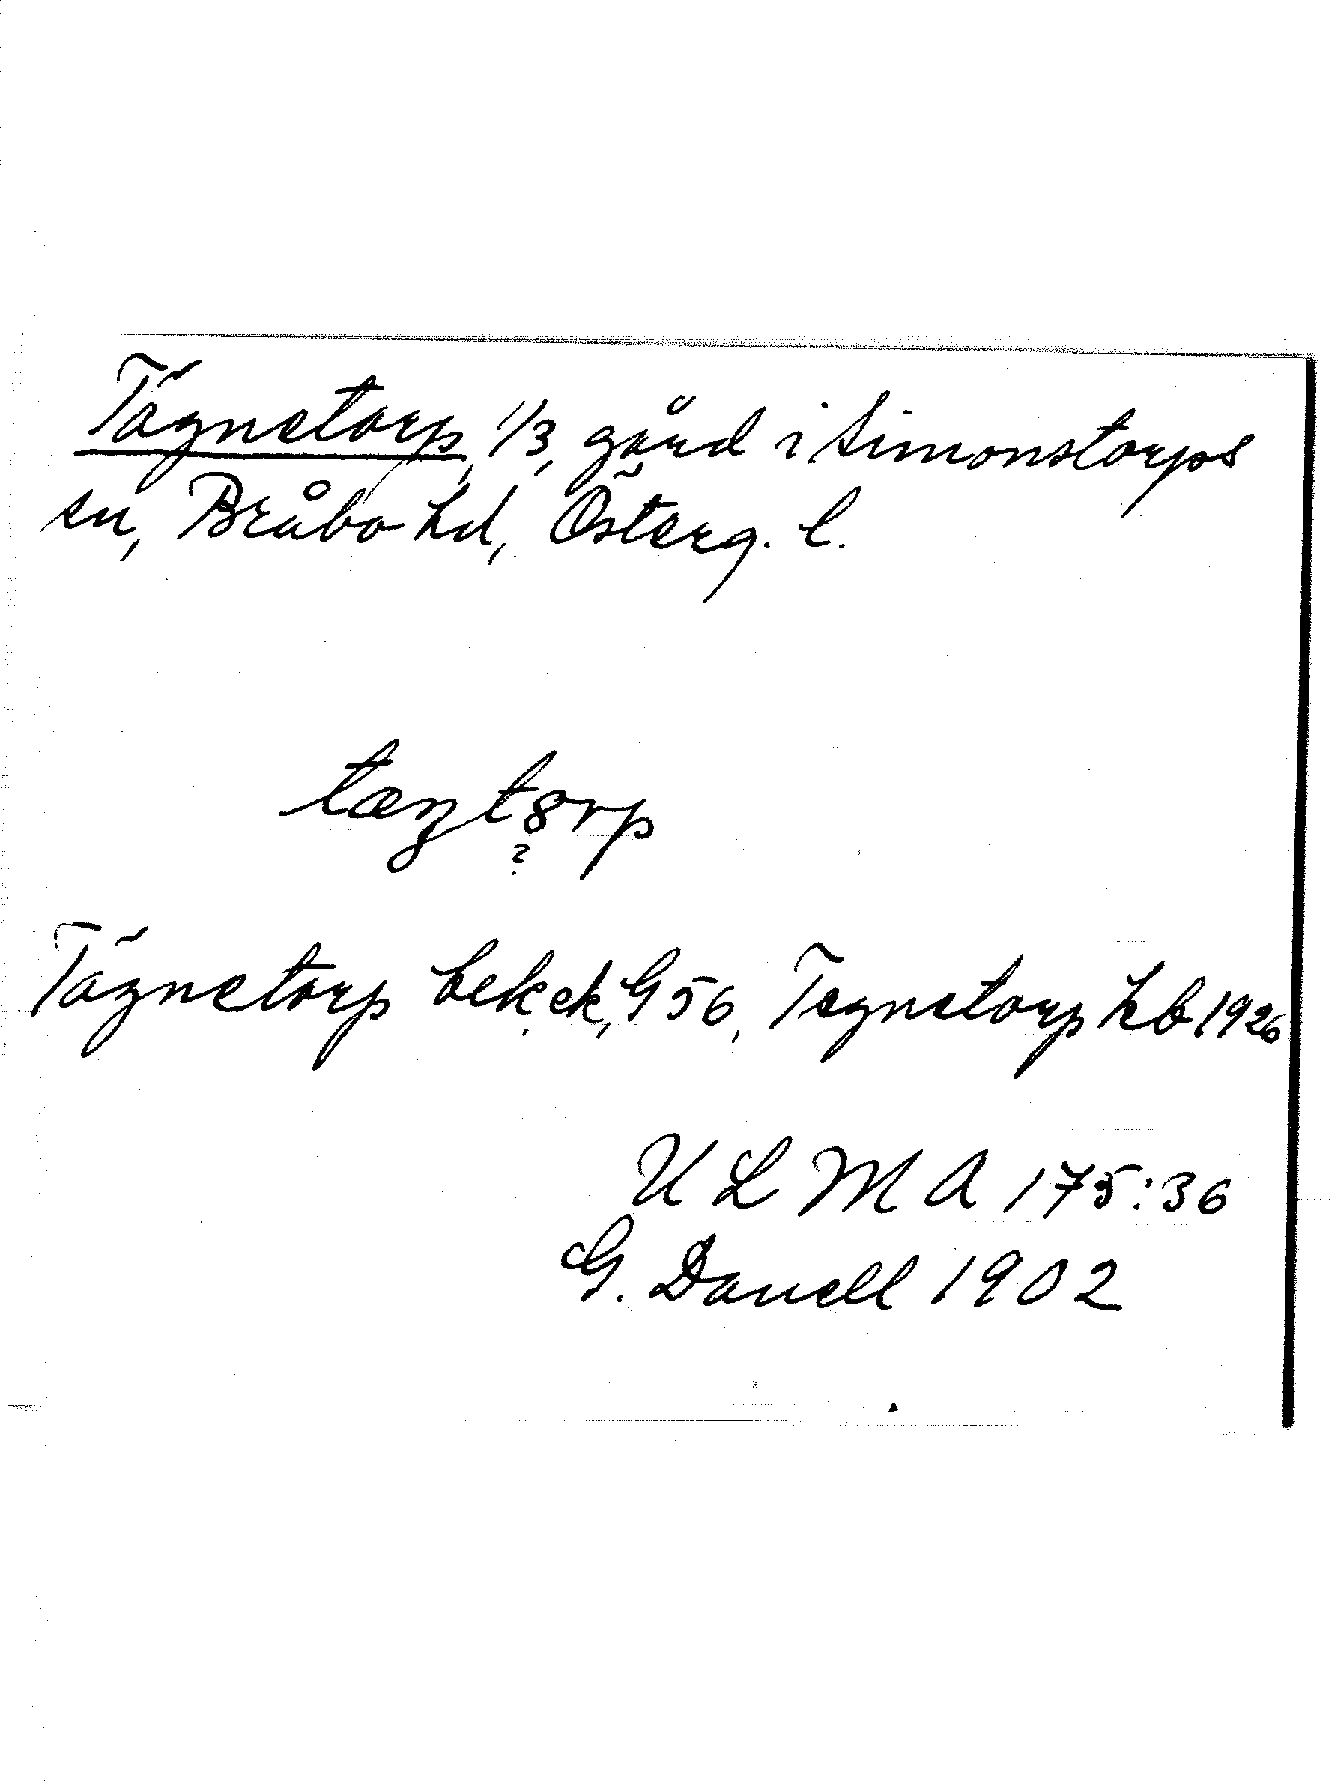 Tägnetorp, 1/3, gård i Simonstorps
sn, Bråbo hd, Österg. l.
tæŋtȣrp
?
Tägnetorp bek. ek, G 56, Tegnetorp hb 1926
ULMA 175:36
G. Danell 1902